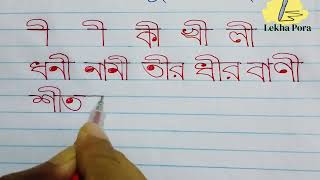 Lekha Pora
ী ী কী খী লী
ধনী নানী তীর ধীর বাণী
শীত